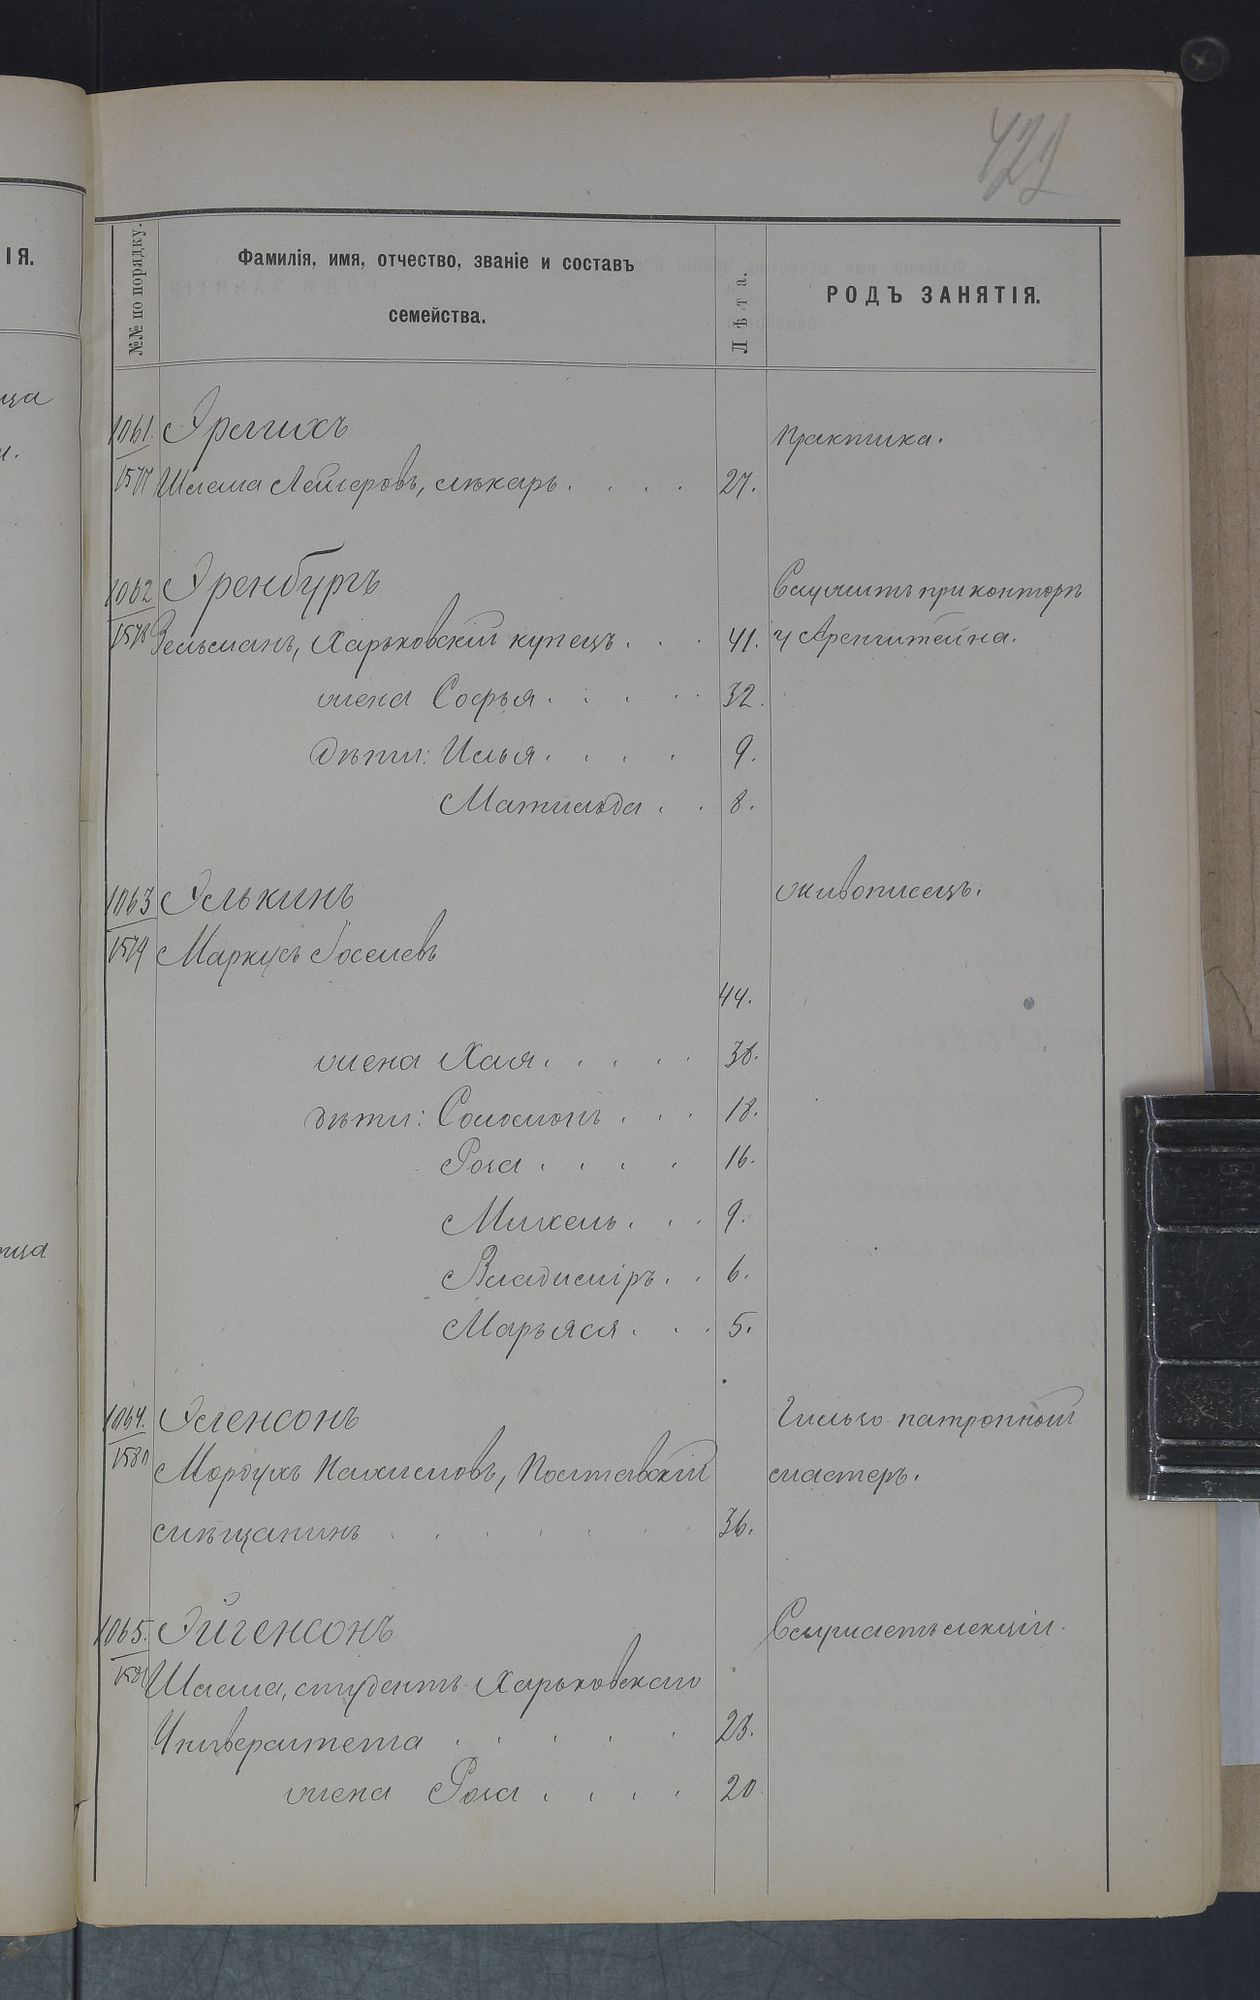 422
ІЯ.
№№ по порядку.
Фамилія, имя, отчество, званіе и составъ
семейства.
Лѣта.
РОДЪ ЗАНЯТІЯ.
ца
1061. Эрлихъ Практика.
1577 Шлема Лейзеровъ, лѣкарь . . . . 27.
1062 Эренбургъ Служитъ при конторѣ
1578 Зельманъ, Харьковскій купецъ . . . 41. у Аренштейна.
жена Софья . . . . . 32.
дѣти: Илья . . . . 9.
Матильда . . 8.
1063 Элькинъ живописецъ.
1579 Маркусъ Іоселевъ
44.
жена Хая . . . . . 38.
дѣти: Соломонъ . . . 18.
Роза . . . . 16.
Михель . . . 9.
Владиміръ . . 6.
Марьяся . . . 5.
1064. Эленсонъ Гильзо-патронный
1580 Мордухъ Нахимовъ, Полтавскій мастеръ.
мѣщанинъ . . . . . . 36.
1065. Эйгенсонъ Слушаетъ лекціи.
1581 Шлема, студентъ Харьковскаго
Университета . . . . . 23.
жена Роза . . . . 20.